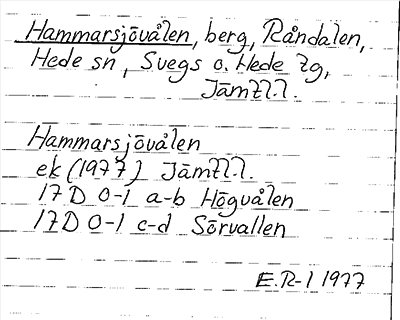 Hammarsjövålen, berg, Råndalen,
Hede sn, Svegs o. Hede tg,
Jämtl.l.
Hammarsjövålen
ek (1977) Jämtl.l.
17 D 0-1 a-b Högvålen
17 D 0-1 c-d Sörvallen
E.R-l 1977